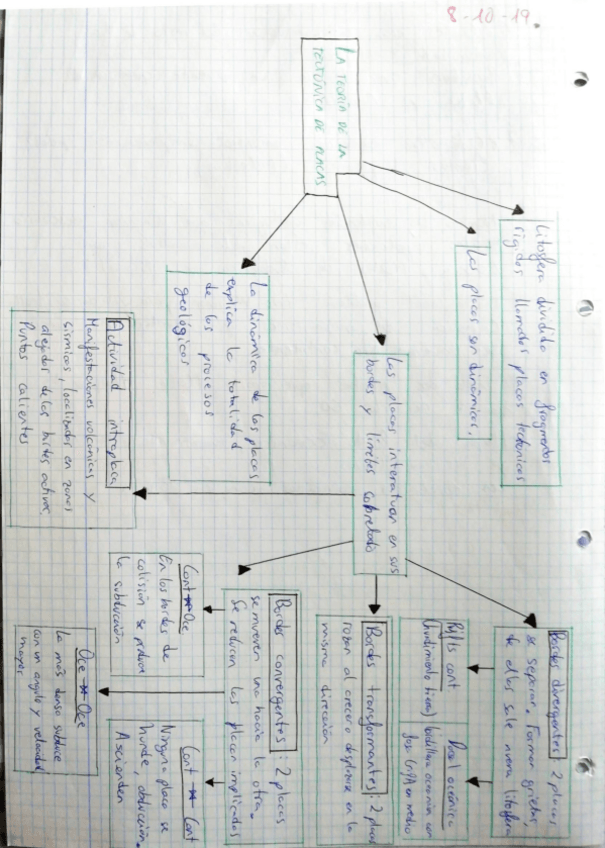 8-10-19.
LA TEORÍA DE LA
TECTÓNICA DE PLACAS
Litosfera dividida en fragmentos
rígidos llamados placas tectónicas
Las placas son dinámicas.
Las placas interatuan en sus
bordes y límites sobretodo
La dinámica de las placas
explica la totalidad
de los procesos
geológicos
Actividad intraplaca
Manifestaciones volcánicas y
sísmicas, localizadas en zonas
alejadas de los bordes activos.
Puntos calientes
Bordes divergentes: 2 placas
se separan. Forman grietas,
de ellas sale nueva litosfera
Rifts cont
(hundimiento
Dorsal oceánica
en medio
Bordes transformantes: 2 placas
rozan al
misma dirección
Bordes convergentes: 2 placas
se mueven una hacia la otra.
Se reducen las placas implicadas
Cont Oce
En los bordes de
colisión se produce
la subducción
Oce Oce
La más densa subduce
con un angulo y velocidad
mayor
Cont Cont
Ninguna placa se
hunde, obducción.
Ascienden